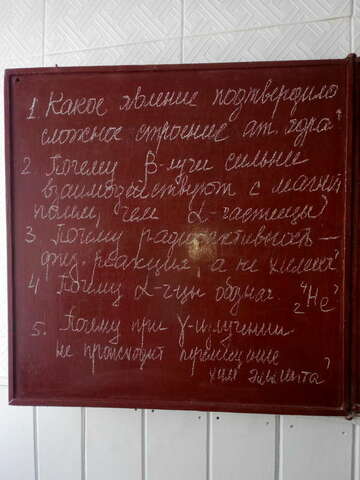 1. Какое явление подтвердило
сложное строение ат. ядра?
2. Почему β-лучи сильнее
взаимодействуют с магнит
полем, чем α-частицы?
3. Почему радиоактивность –
физ. реакция, а не химич?
4 Почему α-цы обознач. ⁴₂He?
5. Почему при γ-излучении
не происходит перемещение
хим элемента?